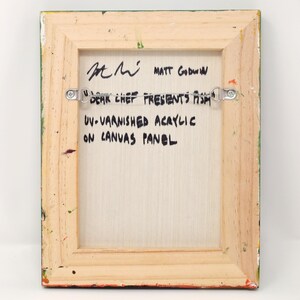 MATT GODWIN
"BEAR CHEF PRESENTS FISH"
UV-VARNISHED ACRYLIC
ON CANVAS PANEL